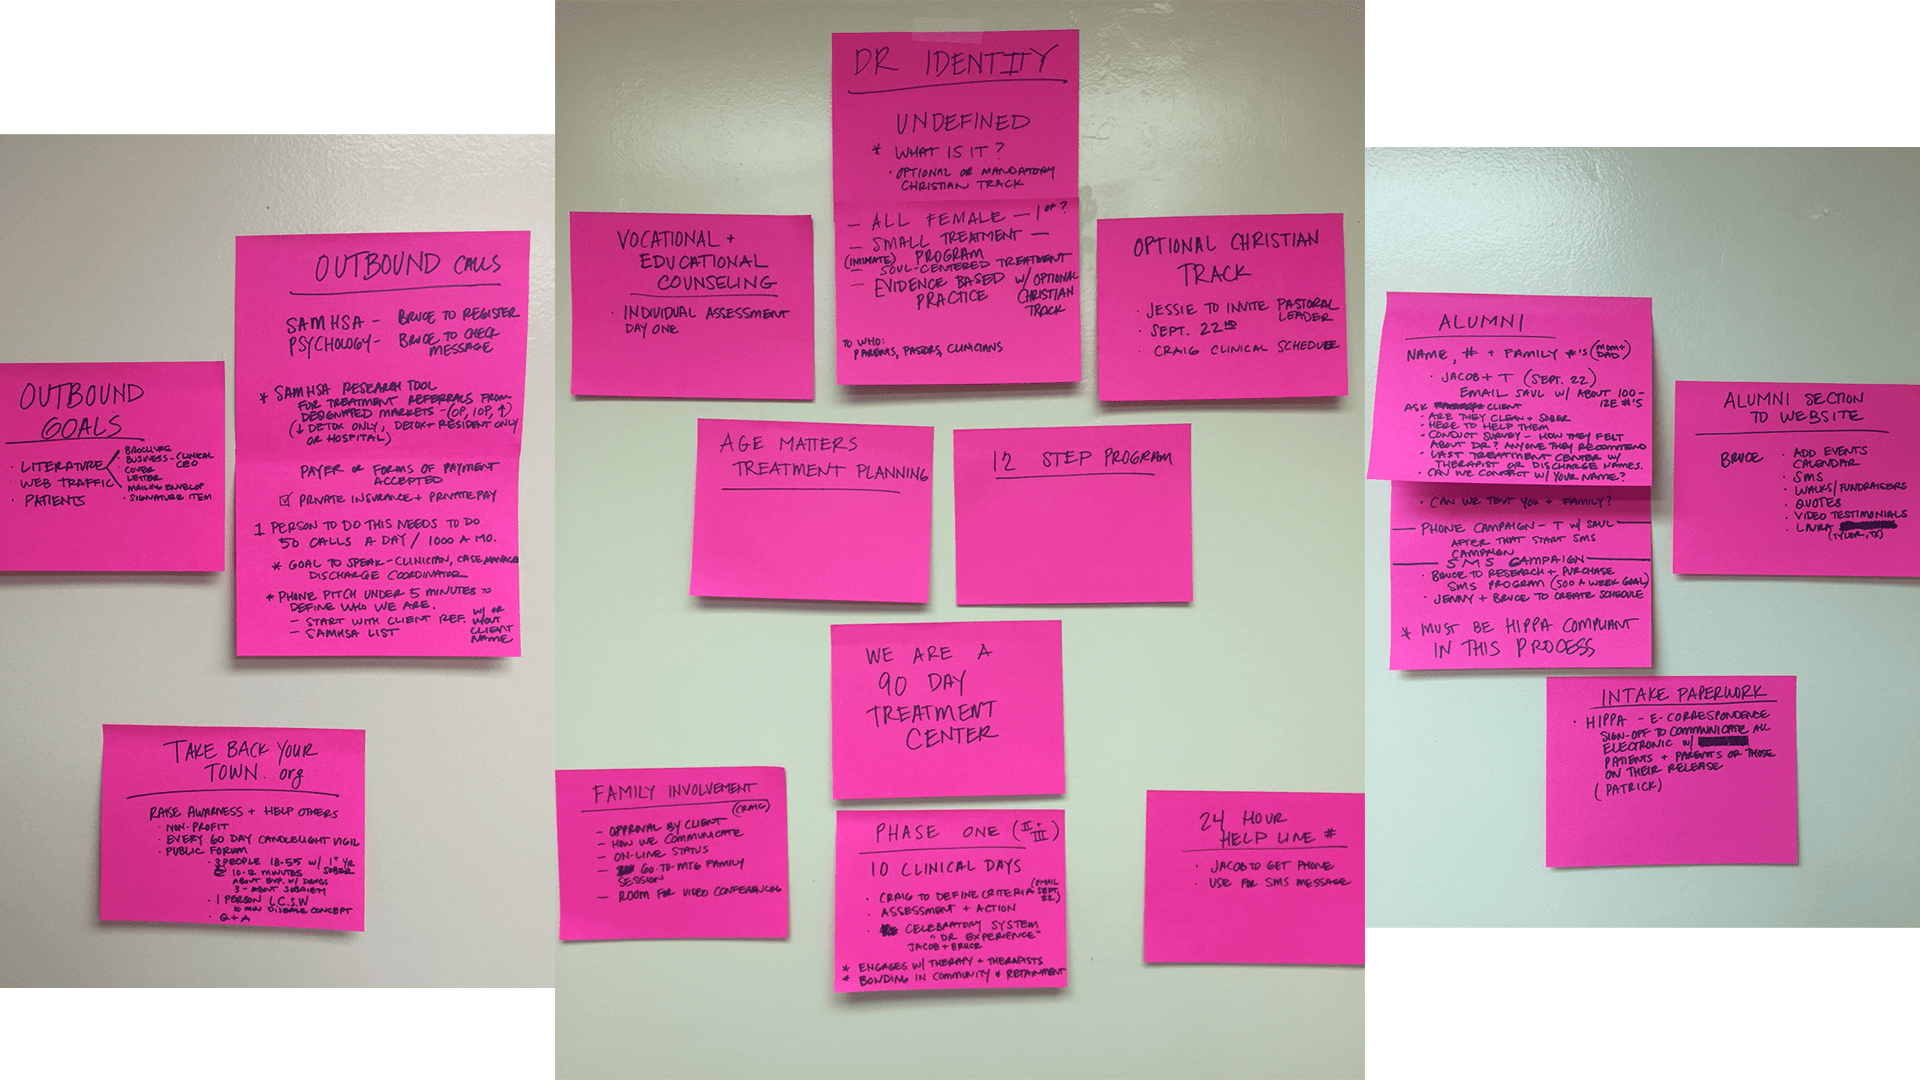 OUTBOUND
GOALS
· LITERATURE
· WEB TRAFFIC
· PATIENTS
· BROCHURE
· BUSINESS - CLINICAL
CEO
· COVER
LETTER
· MAILING ENVELOP
· SIGNATURE ITEM
OUTBOUND CALLS
SAMHSA - BRUCE TO REGISTER
PSYCHOLOGY - BRUCE TO CHECK
MESSAGE
* SAMHSA RESEARCH TOOL
FOR TREATMENT REFERRALS FROM
DESIGNATED MARKETS - (OP, IOP, ↑)
(↓ DETOX ONLY, DETOX + RESIDENT ONLY
OR HOSPITAL)
PAYER OR FORMS OF PAYMENT
ACCEPTED
☑ PRIVATE INSURANCE + PRIVATE PAY
1 PERSON TO DO THIS NEEDS TO DO
50 CALLS A DAY / 1000 A MO.
* GOAL TO SPEAK - CLINICIAN, CASE MANAGE
DISCHARGE COORDINATOR
* PHONE PITCH UNDER 5 MINUTES TO
DEFINE WHO WE ARE.
- START WITH CLIENT REF. W/ OR
W/OUT
CLIENT
NAME
- SAMHSA LIST
TAKE BACK YOUR
TOWN.org
RAISE AWARNESS + HELP OTHERS
· NON-PROFIT
· EVERY 60 DAY CANDLELIGHT VIGIL
· PUBLIC FORUM
· 3 PEOPLE 18-55 W/ 1+ YR
SOBER
10-12 MINUTES
ABOUT EXP. W/ DRUGS
3 - ABOUT SOBRIETY
· 1 PERSON L.C.S.W
10 MIN DISEASE CONCEPT
· Q + A
DR IDENTITY
UNDEFINED
* WHAT IS IT?
· OPTIONAL OR MANDATORY
CHRISTIAN TRACK
- ALL FEMALE - 1 OF?
- SMALL TREATMENT -
(INTIMATE) PROGRAM
- SOUL-CENTERED TREATMENT
- EVIDENCE BASED W/ OPTIONAL
PRACTICE CHRISTIAN
TRACK
TO WHO:
PARENTS, PASTORS, CLINICIANS
VOCATIONAL +
EDUCATIONAL
COUNSELING
· INDIVIDUAL ASSESSMENT
DAY ONE
OPTIONAL CHRISTIAN
TRACK
· JESSIE TO INVITE PASTORAL
LEADER
· SEPT. 22ND
· CRAIG CLINICAL SCHEDULE
AGE MATTERS
TREATMENT PLANNING
12 STEP PROGRAM
WE ARE A
90 DAY
TREATMENT
CENTER
FAMILY INVOLVEMENT
(CRAIG)
- APPROVAL BY CLIENT
- HOW WE COMMUNICATE
- ON-LINE STATUS
- GO-TO-MTG FAMILY
SESSION
- ROOM FOR VIDEO CONFERENCING
PHASE ONE (II + III)
10 CLINICAL DAYS
· CRAIG TO DEFINE CRITERIA (EMAIL
SEPT.
22)
· ASSESSMENT + ACTION
· CELEBRATORY SYSTEM
"DR EXPERIENCE"
JACOB + BRUCE
* ENGAGES W/ THERAPY + THERAPISTS
* BONDING IN COMMUNITY + RETAINMENT
24 HOUR
HELP LINE #
· JACOB TO GET PHONE
· USE FOR SMS MESSAGE
ALUMNI
NAME, # + FAMILY #'S (MOM +
DAD)
· JACOB + T (SEPT. 22)
EMAIL SAUL W/ ABOUT 100-
125 #'S
ASK CLIENT
· ARE THEY CLEAN + SOBER
· HERE TO HELP THEM
· CONDUCT SURVEY - HOW THEY FELT
ABOUT DR? ANYONE THEY RECOMMEND
· LAST TREATMENT CENTER W/
THERAPIST OR DISCHARGE NAMES.
· CAN WE CONTACT W/ YOUR NAME?
· CAN WE TEXT YOU + FAMILY?
PHONE CAMPAIGN - T W/ SAUL
AFTER THAT START SMS
CAMPAIGN
SMS CAMPAIGN
· BRUCE TO RESEARCH + PURCHASE
SMS PROGRAM (500 A WEEK GOAL)
· JENNY + BRUCE TO CREATE SCHEDULE
* MUST BE HIPPA COMPLIANT
IN THIS PROCESS
ALUMNI SECTION
TO WEBSITE
BRUCE · ADD EVENTS
CALENDAR
· SMS
· WALKS/FUNDRAISERS
· QUOTES
· VIDEO TESTIMONIALS
· LAURA
(TYLER, TX)
INTAKE PAPERWORK
· HIPPA - E-CORRESPONDENCE
SIGN-OFF TO COMMUNICATE ALL
ELECTRONIC W/
PATIENTS + PARENTS OR THOSE
ON THEIR RELEASE
(PATRICK)